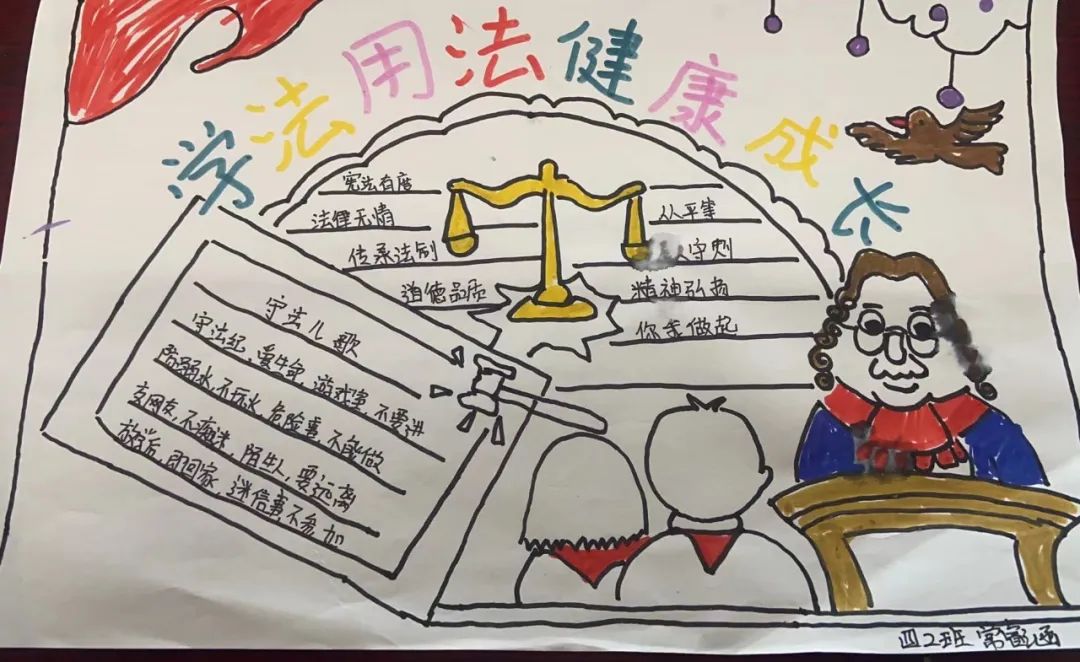 学法用法健康成长
宪法有度
法律无情
传承法制
道德品质
从平等
守则
精神弘扬
你我做起
守法儿歌
守法纪,爱生命,游戏室,不要进
防溺水,不玩火,危险事,不能做
交网友,不痴迷,陌生人,要远离
放学后,即回家,迷信事,不参加
四2班 常